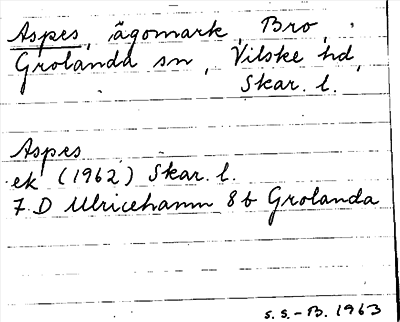 Aspes, ägomark, Bro,
Grolanda sn, Vilske hd,
Skar. l.
Aspes
ek (1962) Skar. l.
7 D Ulricehamn 8 b Grolanda
S.S.-B. 1963